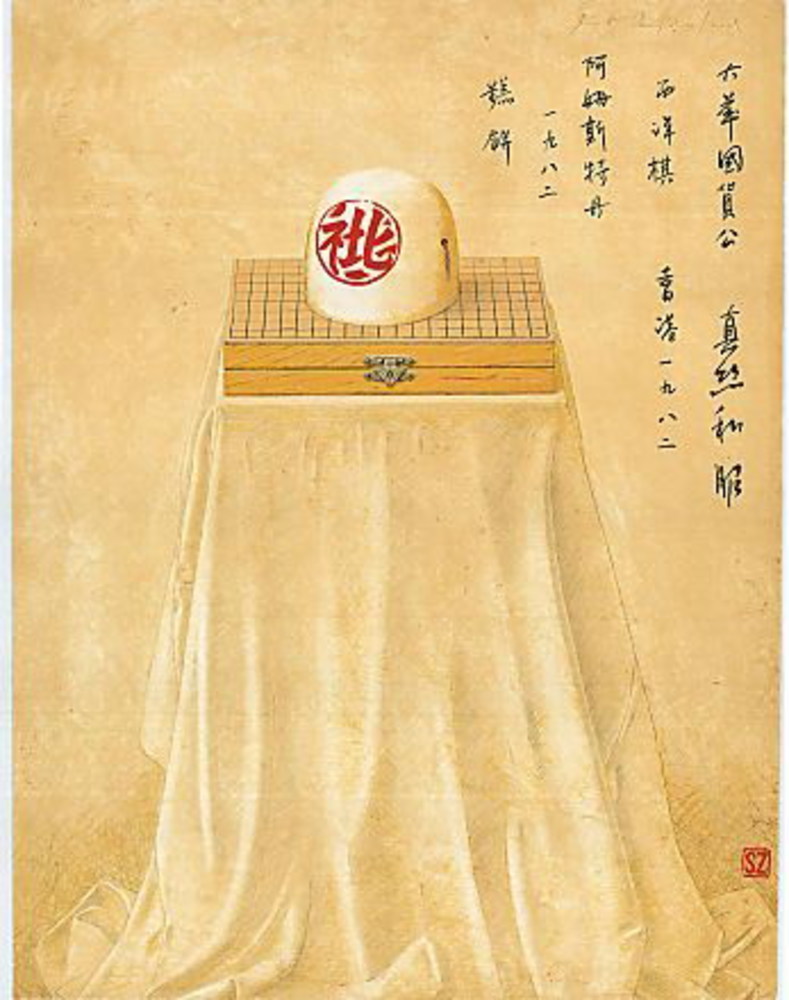 大華國貨公 真絲和服
西洋棋 香港一九八二
阿姆斯特丹
一九八二
糕餅
SZ